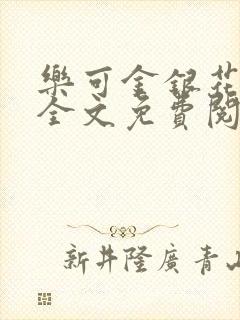 樂可金銀花
全文免費閱
新井隆廣青山